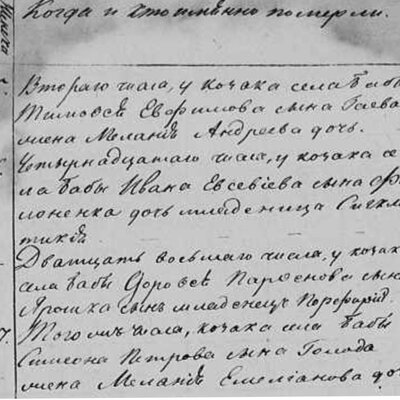 Когда и кто имѣнно померли.
Втораго числа, у козака села Бабы
Тимоѳеѣ Евфимова сына Гаева
жена Меланія Андреева дочь.
Четырнадцатаго числа, у козака се-
ла Бабы Ивана Евсевіева сына Фи-
лоненка дочь младеница Синкли-
тикія
Двадцать восьмаго числа, у козак
села Бабы Дороѳеѣ Парѳенова сын
Ярошка сынъ младенецъ Порфирій
7. Того жъ числа, козака села Бабы
Симеона Петрова сына Голода
жена Меланія Емеліанова до